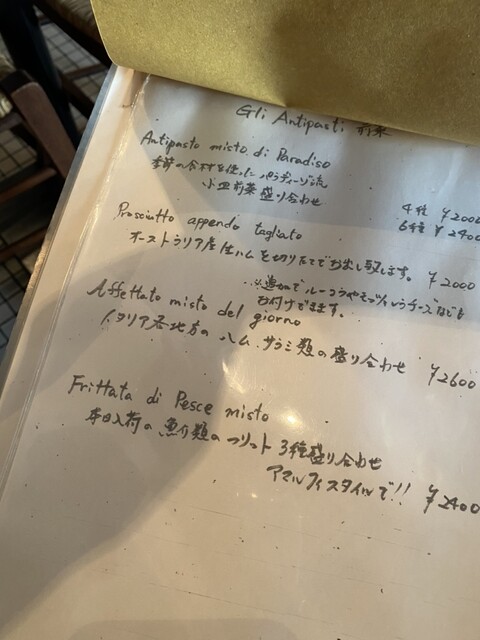 Gli Antipasti 前菜
Antipasto misto di Paradiso
季節の食材を使ったパラディーゾ流
小皿前菜盛り合わせ
4種 ¥2000
6種 ¥2400
Prosciutto appendo tagliato
オーストラリア産生ハムを切りたてでお出し致します。 ¥2000
※追加でルーコラやモッツァレラチーズなども
お付けできます。
Affettato misto del giorno
イタリア各地方のハム、サラミ類の盛り合わせ ¥2600
Frittata di Pesce misto
本日入荷の魚介類のフリット3種盛り合わせ
アマルフィスタイルで!! ¥2400